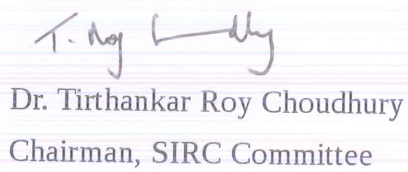 T. Roy Choudhury
Dr. Tirthankar Roy Choudhury
Chairman, SIRC Committee